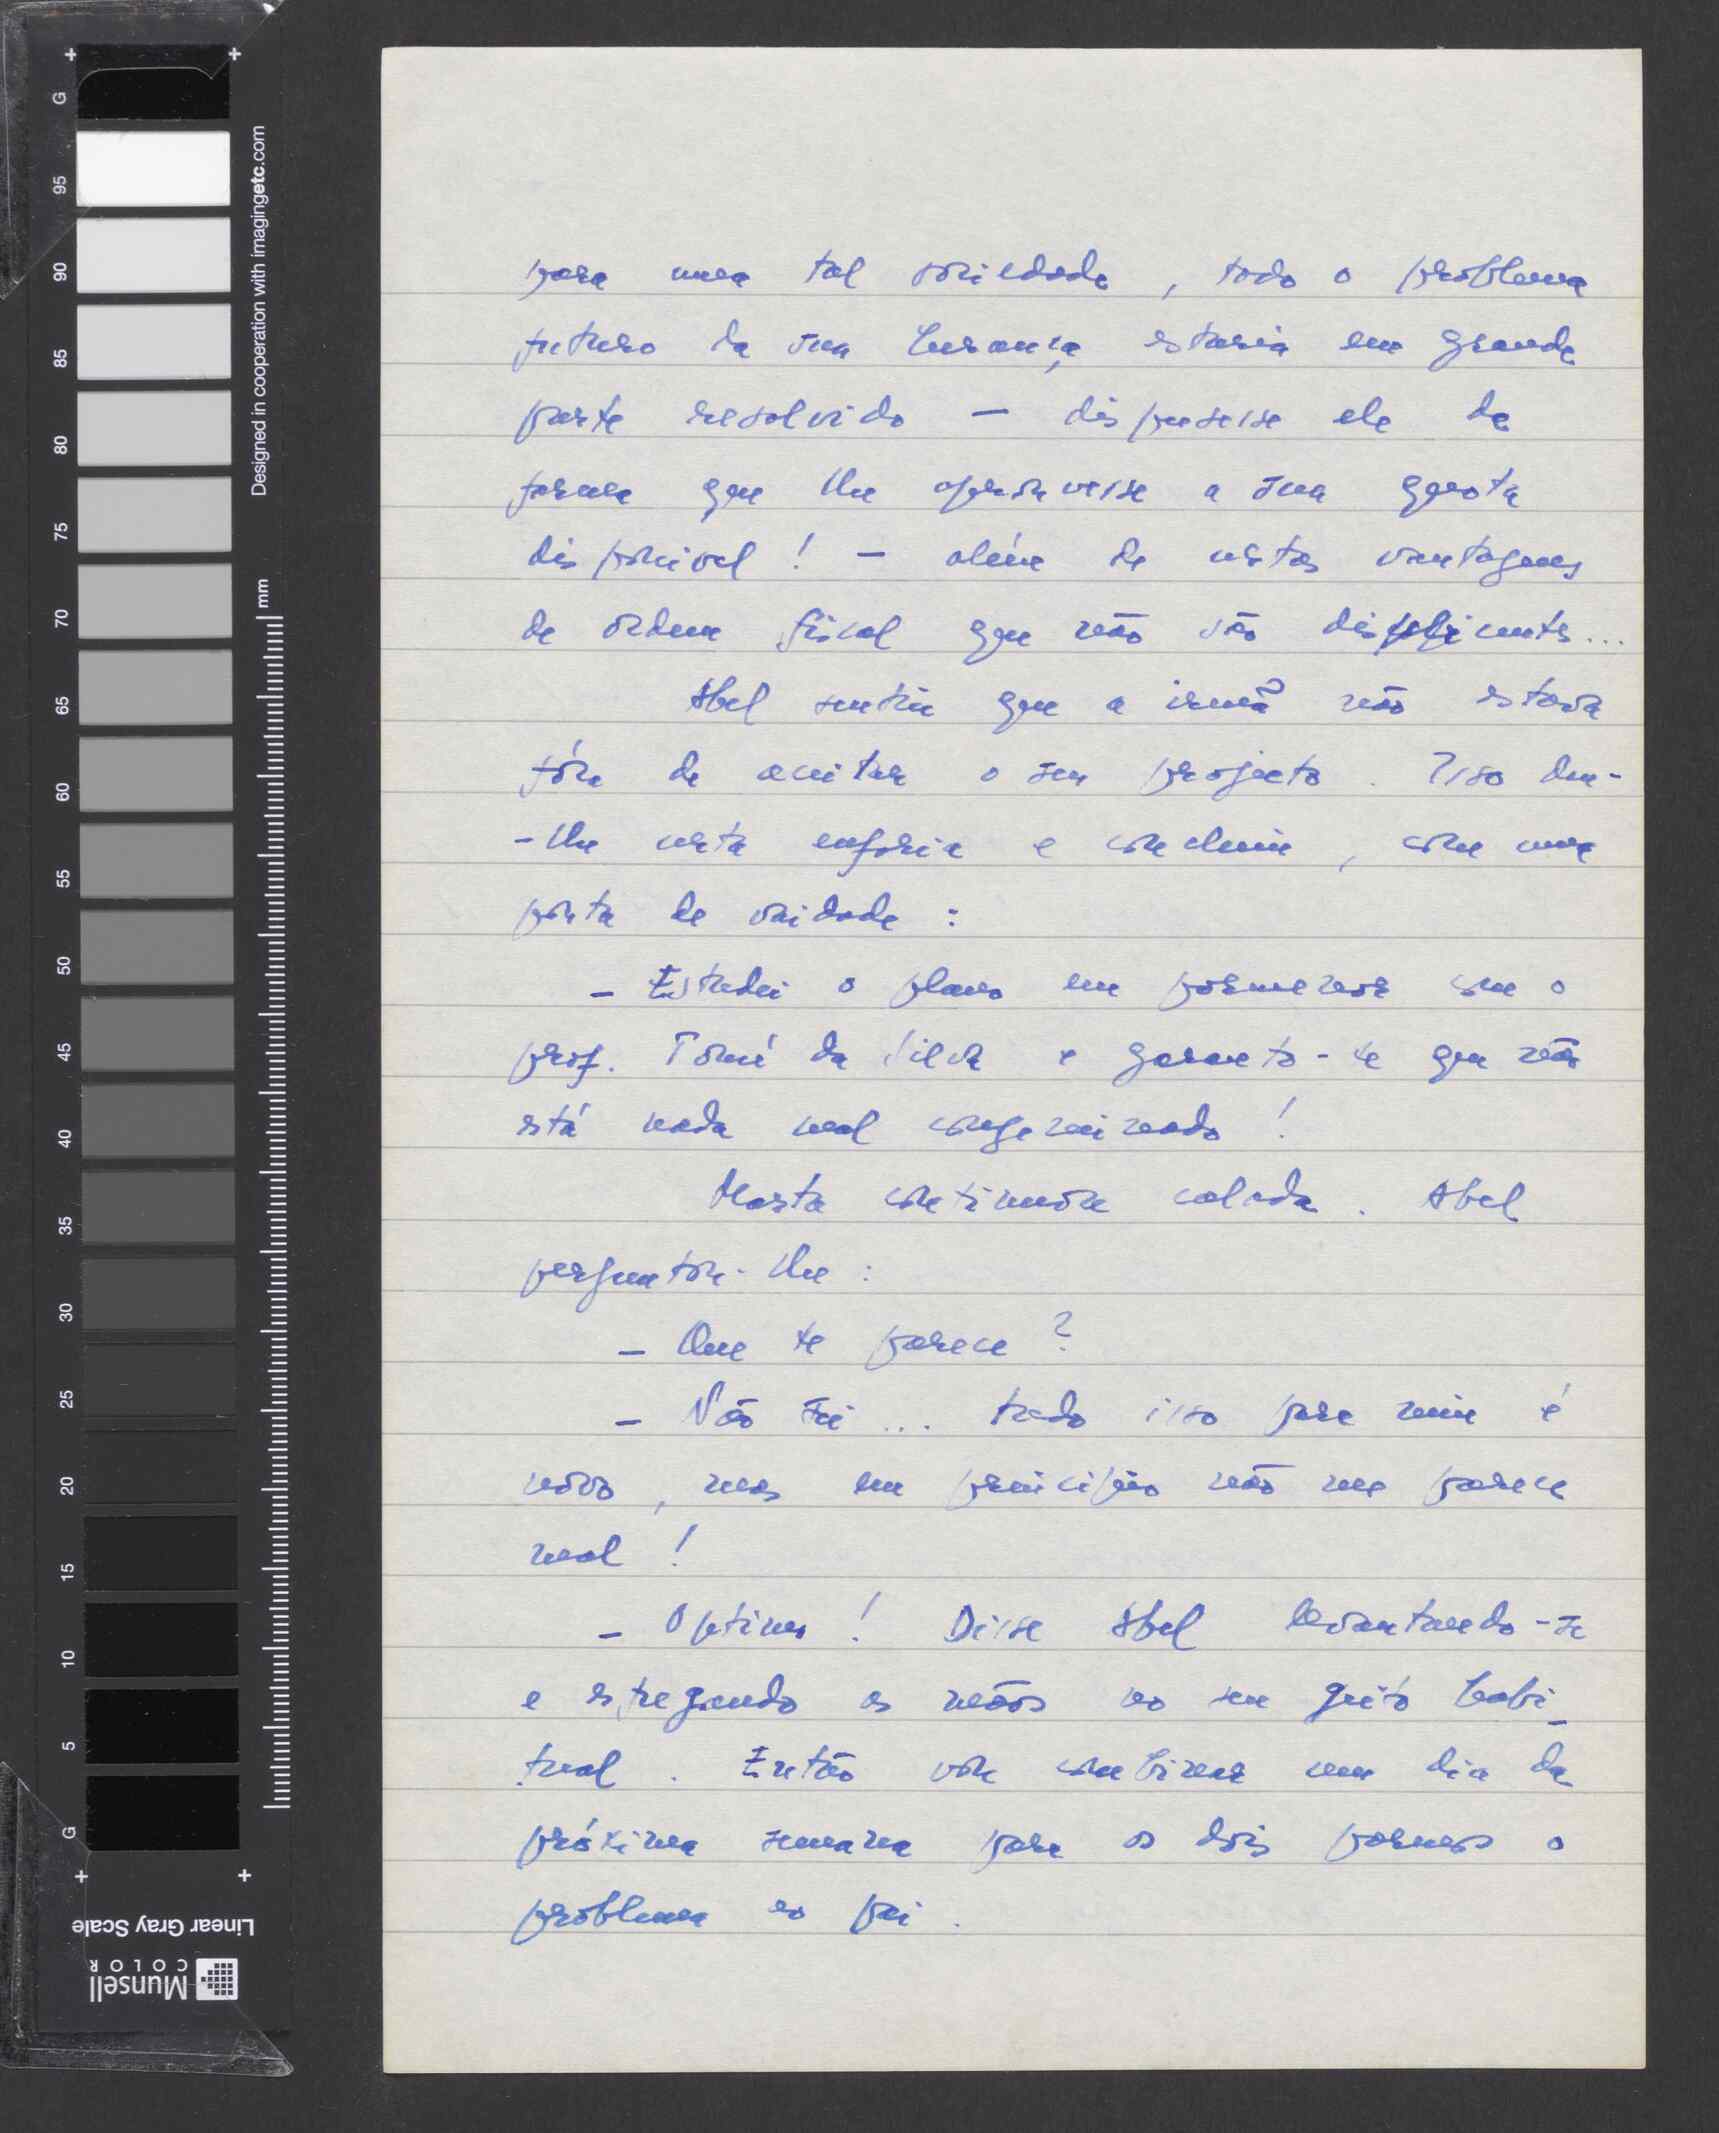 para uma tal sociedade, todo o problema
futuro da sua herança estaria em grande
parte resolvido — dispusesse ele da
forma que lhe aprouvesse a sua quota
disponivel! — além de certas vantagens
de ordem fiscal que não são displicentes...
Abel sentiu que a irmã não estava
fóra de aceitar o seu projecto. Isso deu-
-lhe certa euforia e concluiu, com uma
ponta de vaidade:
— Estudei o plano em pormenor com o
prof. Tomé da Silva e garanto-te que não
está nada mal congeminado!
Marta continuou calada. Abel
perguntou-lhe:
— Que te parece?
— Não sei... tudo isso para mim é
novo, mas em principio não me parece
mal!
— Optimo! Disse Abel levantando-se
e esfregando as mãos no seu geito habi-
tual. Então vou combinar um dia da
próxima semana para os dois pormos o
problema ao pai.
G
95
90
85
80
75
70
65
60
55
50
45
40
35
30
25
20
15
10
5
G
Designed in cooperation with imagingetc.com
mm
Linear Gray Scale
Munsell
COLOR